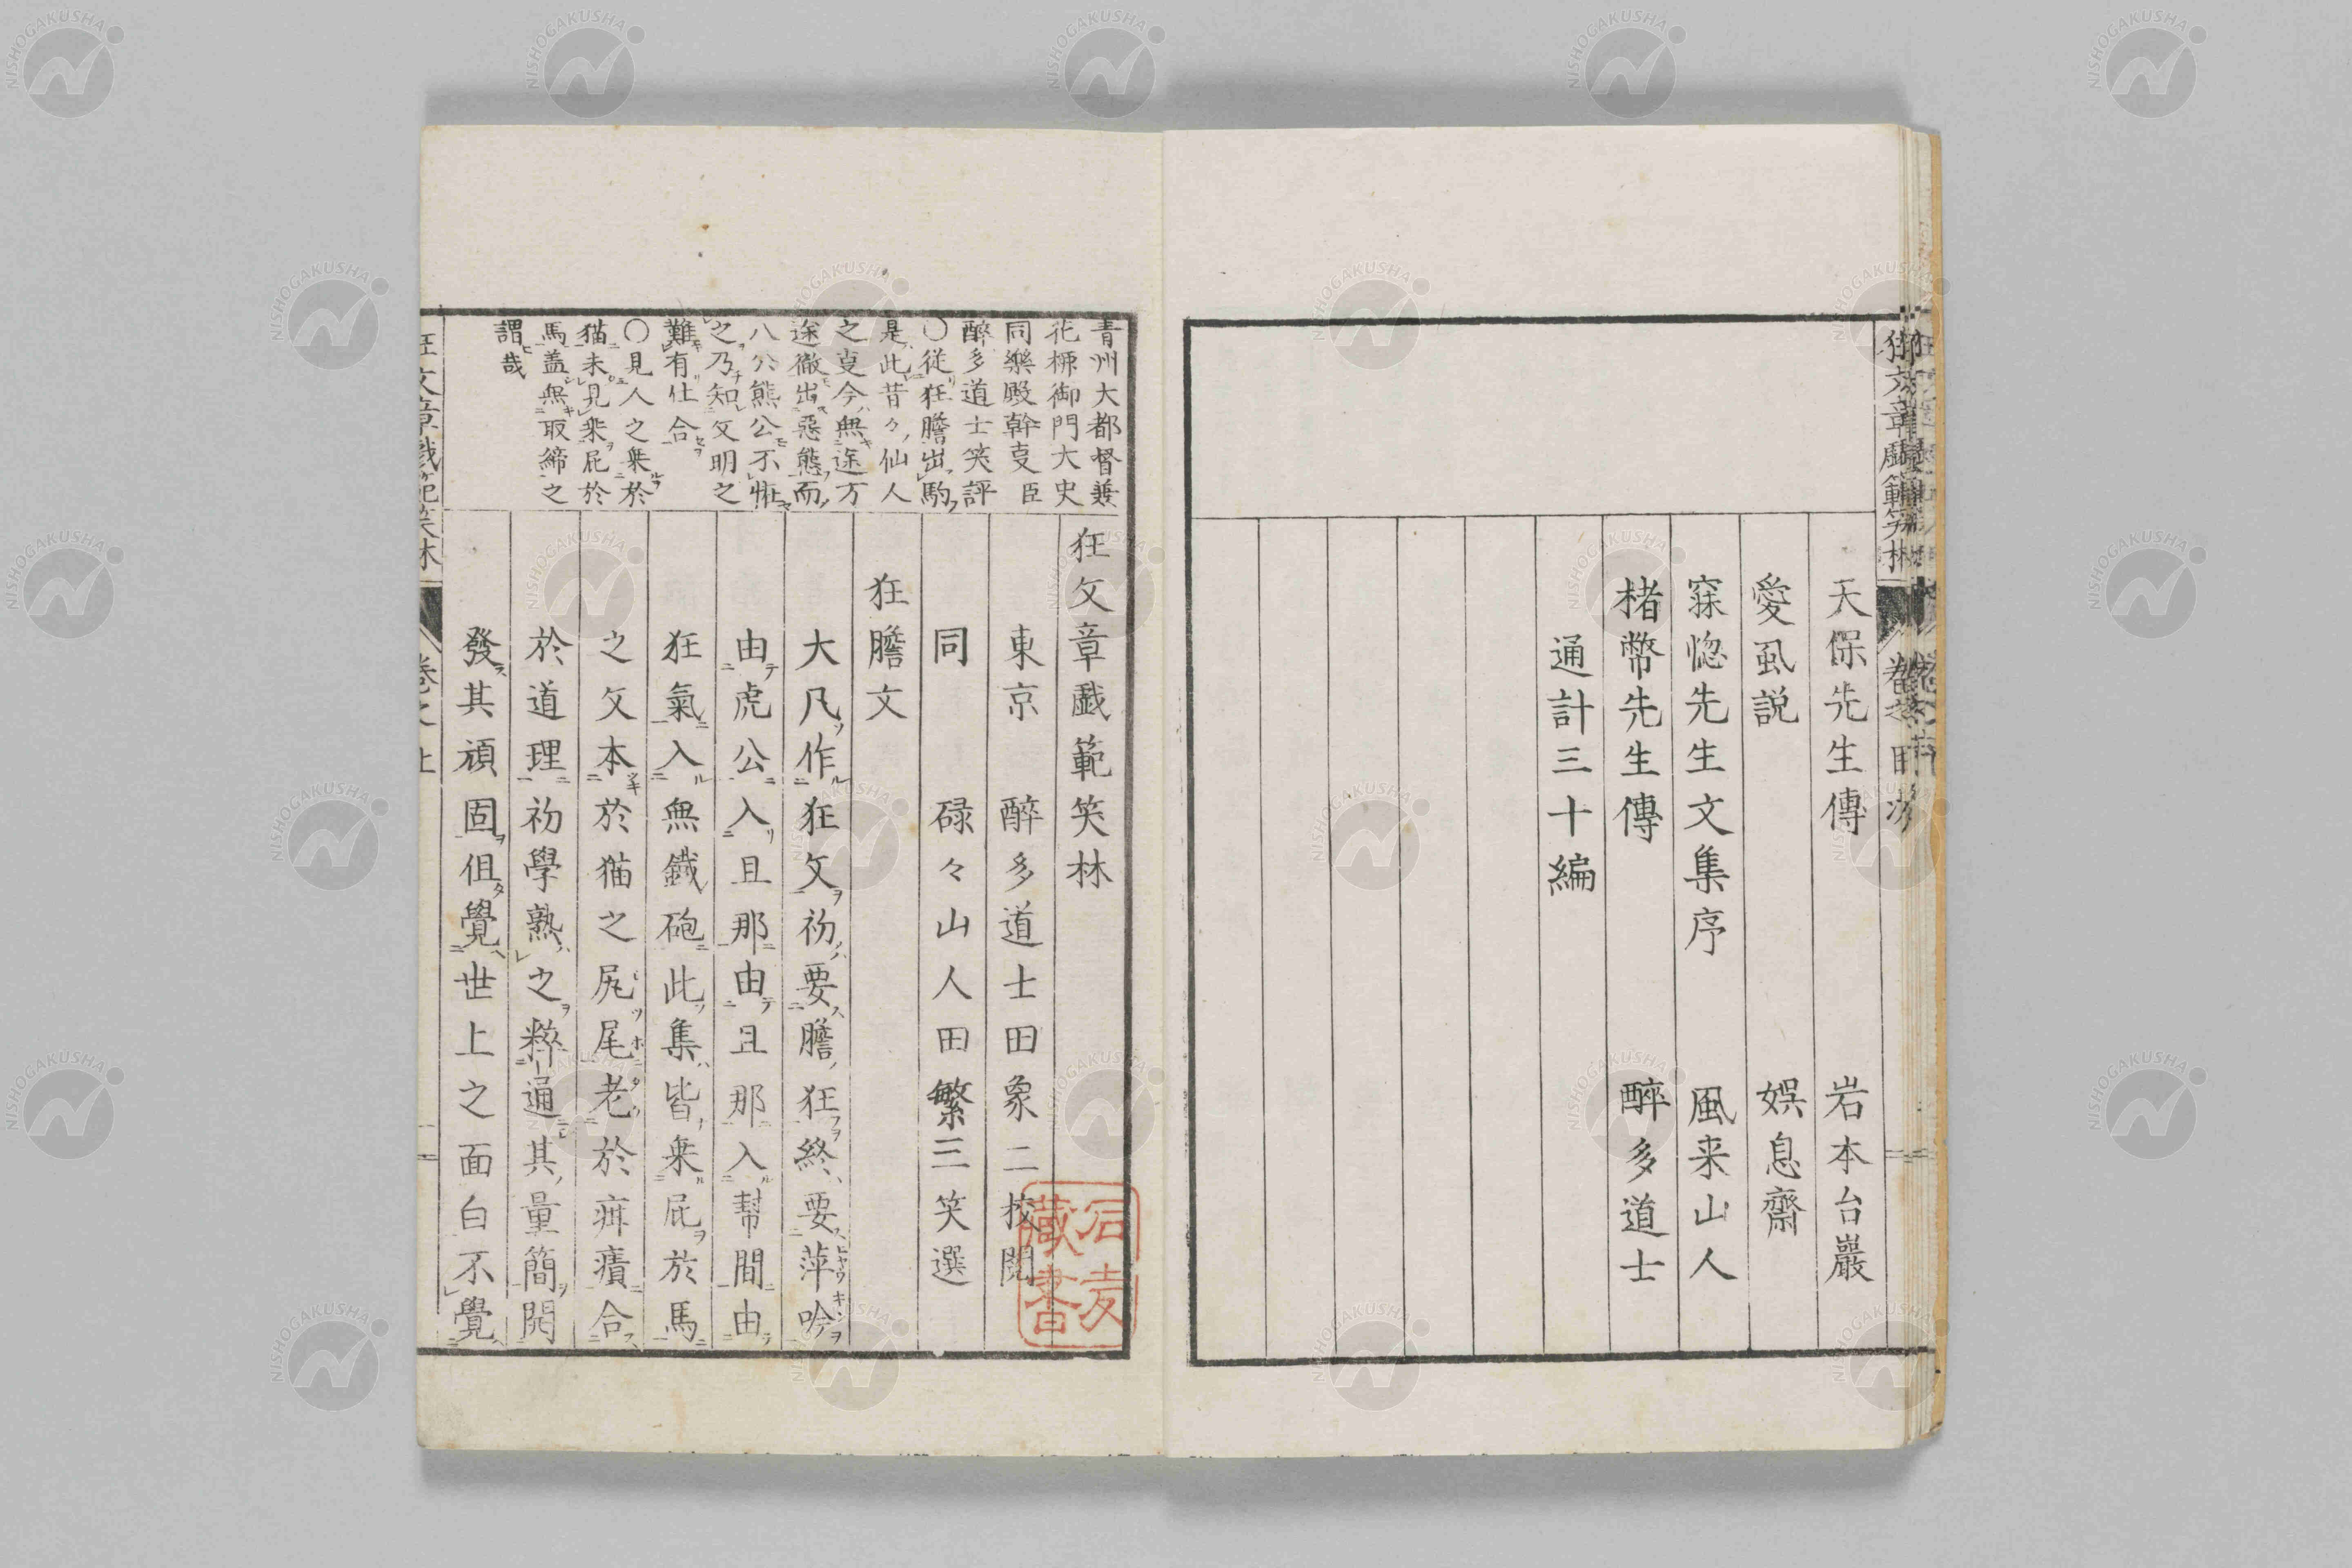 天保先生傳　岩本台巖
愛虱説　娯息齋
寐惚先生文集序　風来山人
楮幣先生傳　醉多道士
通計三十編
青州大都督兼
花柳御門大史
同樂殿幹叓臣
醉多道士笑評
〇從狂膽出駒
是此昔々仙人
之叓今無途方
途徹出惡態而
八公熊公不恠
之乃知文明之
難有仕合
〇見人之乗於
猫未見乗屁於
馬盖無取締之
謂哉
狂文章戯範笑林
東京　醉多道士田象二校閲
同　碌々山人田繁三笑選
狂膽文
大凡作狂文初要膽狂終要萍吟
由虎公入且那由且那入幇間由
狂氣入無鐵砲此集皆乗屁於馬
之文本於猫之尻尾老於痳癀合
於道理初學熟之粹通其量簡開
發其頑固伹覺世上之面白不覺
狂文章戯範笑林　卷之上
石麦藏書
NISHOGAKUSHA